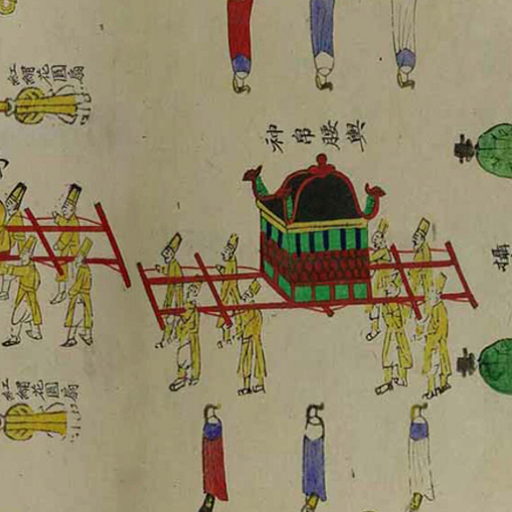 紅綢花圓扇
神帛腰輿
攝
紅綢花圓扇